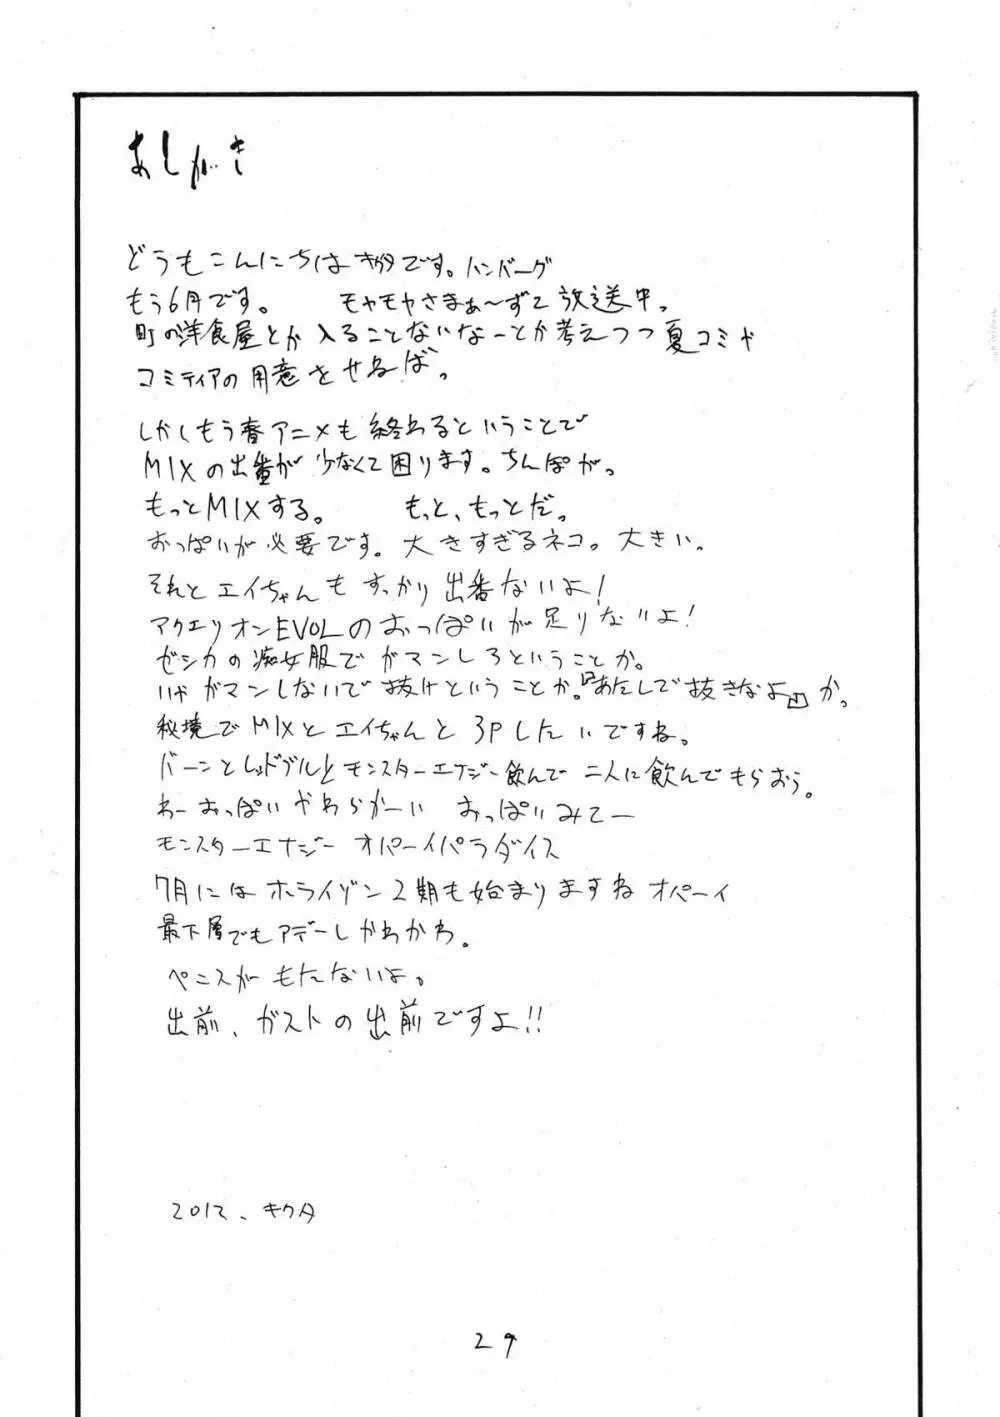 あしがき
どうもこんにちは キクタです。ハンバーグ
もう6月です。 モヤモヤさまぁ〜ず2 放送中。
町の洋食屋とか入ることないなーとか考えつつ夏コミや
コミティアの用意をせねば。
しかしもう春アニメも終わるということで
MIXの出番が少なくて困ります。ちんぽが。
もっとMIXする。 もっと、もっとだ。
おっぱいが必要です。大きすぎるネコ。大きい。
それとエイちゃんもすっかり出番ないよ!
アクエリオンEVOLのおっぱいが足りないよ!
ゼシカの痴女服でガマンしろということか。
いやガマンしないで抜けということか。『あたしで抜きなよ』か。
秘境でMIXとエイちゃんと3Pしたいですね。
バーンとレッドブルとモンスターエナジー飲んで二人に飲んでもらおう。
わーおっぱいやわらかーい おっぱいみてー
モンスターエナジー オパーイパラダイス
7月にはホライゾン2期も始まりますねオパーイ
最下層でもアデーしかわかわ。
ペニスがもたないよ。
出前、ガストの出前ですよ!!
2012、キクタ
29